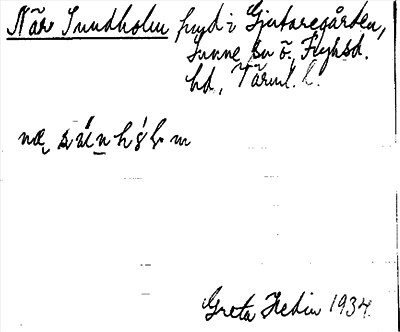 När Sundholm fryd i Gjutaregården,
Sunne sn ö. Fryksd.
hd, Värml. l.
Greta Hedin 1934.